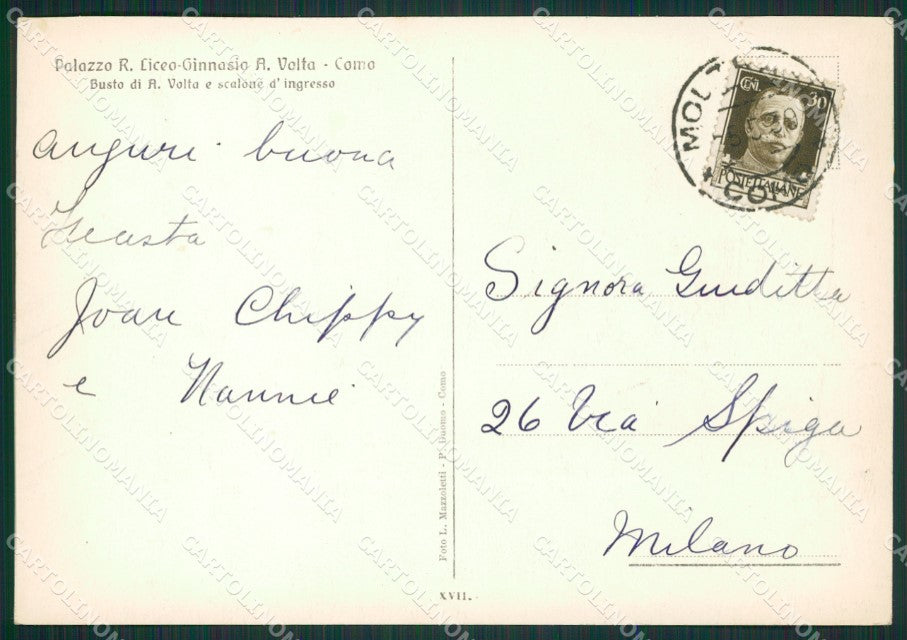 Palazzo R. Liceo-Ginnasio A. Volta - Como
Busto di A. Volta e scalone d'ingresso
Auguri buona
Feasta
Joan Chippy
e Nannie
Foto L. Mazzoletti - P. Duomo - Como
XVII.
MOL
CO
CENI. 30
POSTE ITALIANE
Signora Guiditta
26 Via Spiga
Milano
CARTOLINOMANIA